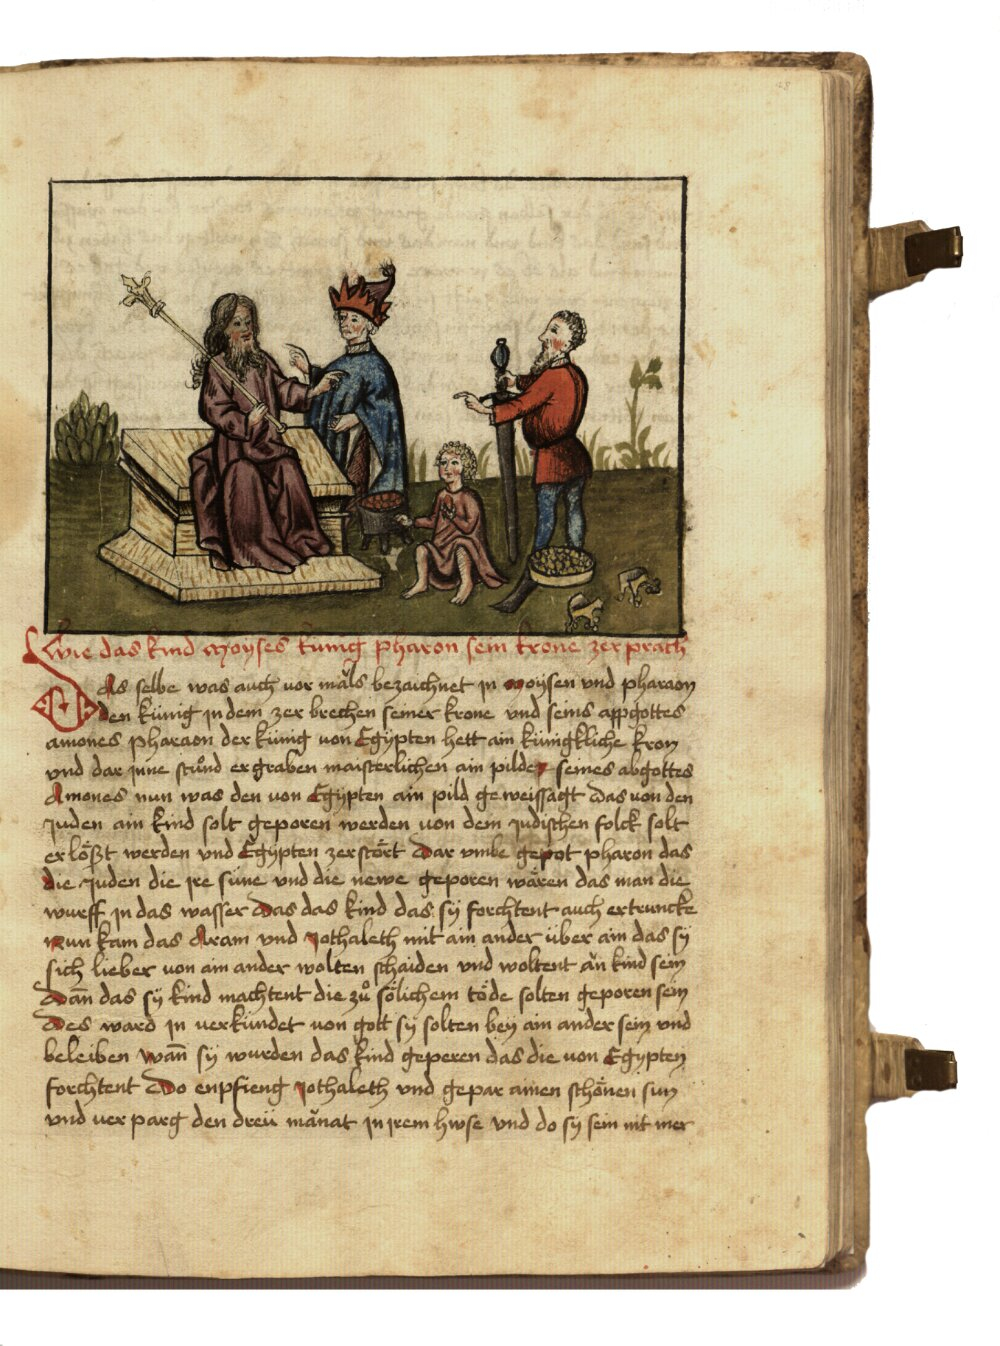 Wie das kind Moyses künig pharon sein krone zerprach
Das selbe was auch vor mäls bezaichnet in Moÿsen vnd pharaon
den künig in dem zer brechen seiner krone vnd seins appgottes
amones Pharaon der künig von Egÿpten hett ain künigkliche kron
vnd dar jnne stůnd ergraben maisterlichen ain pilder seines abgottes
Amones nun was den von Egipten ain pild geweissagt das von den
Juden ain kind solt geporen werden von dem Judischen folck solt
erlößt werden vnd Egÿpten zerstört Dar vmbe gepot pharon das
die Juden die jre süne vnd die newe geporen wären das man die
wurff jn das wasser Das das kind das sÿ forchtent auch ertruncke
Nun kam das Aram vnd Jothaleth mit ain ander über ain das sÿ
sich lieber von ain ander wolten schaiden vnd woltent än kind sein
Dañ das sÿ kind machtent die zů sölichem töde solten geporen sein
Des ward jn verkündet von gott sÿ solten beÿ ain ander sein vnd
beleiben Wañ sÿ wurden das kind geperen das die von Egÿpten
forchtent Do enpfieng Jothaleth vnd gepar ainen schönen sun
vnd verparg den dreü mänat jn jrem hwse vnd do sÿ sein nit mer